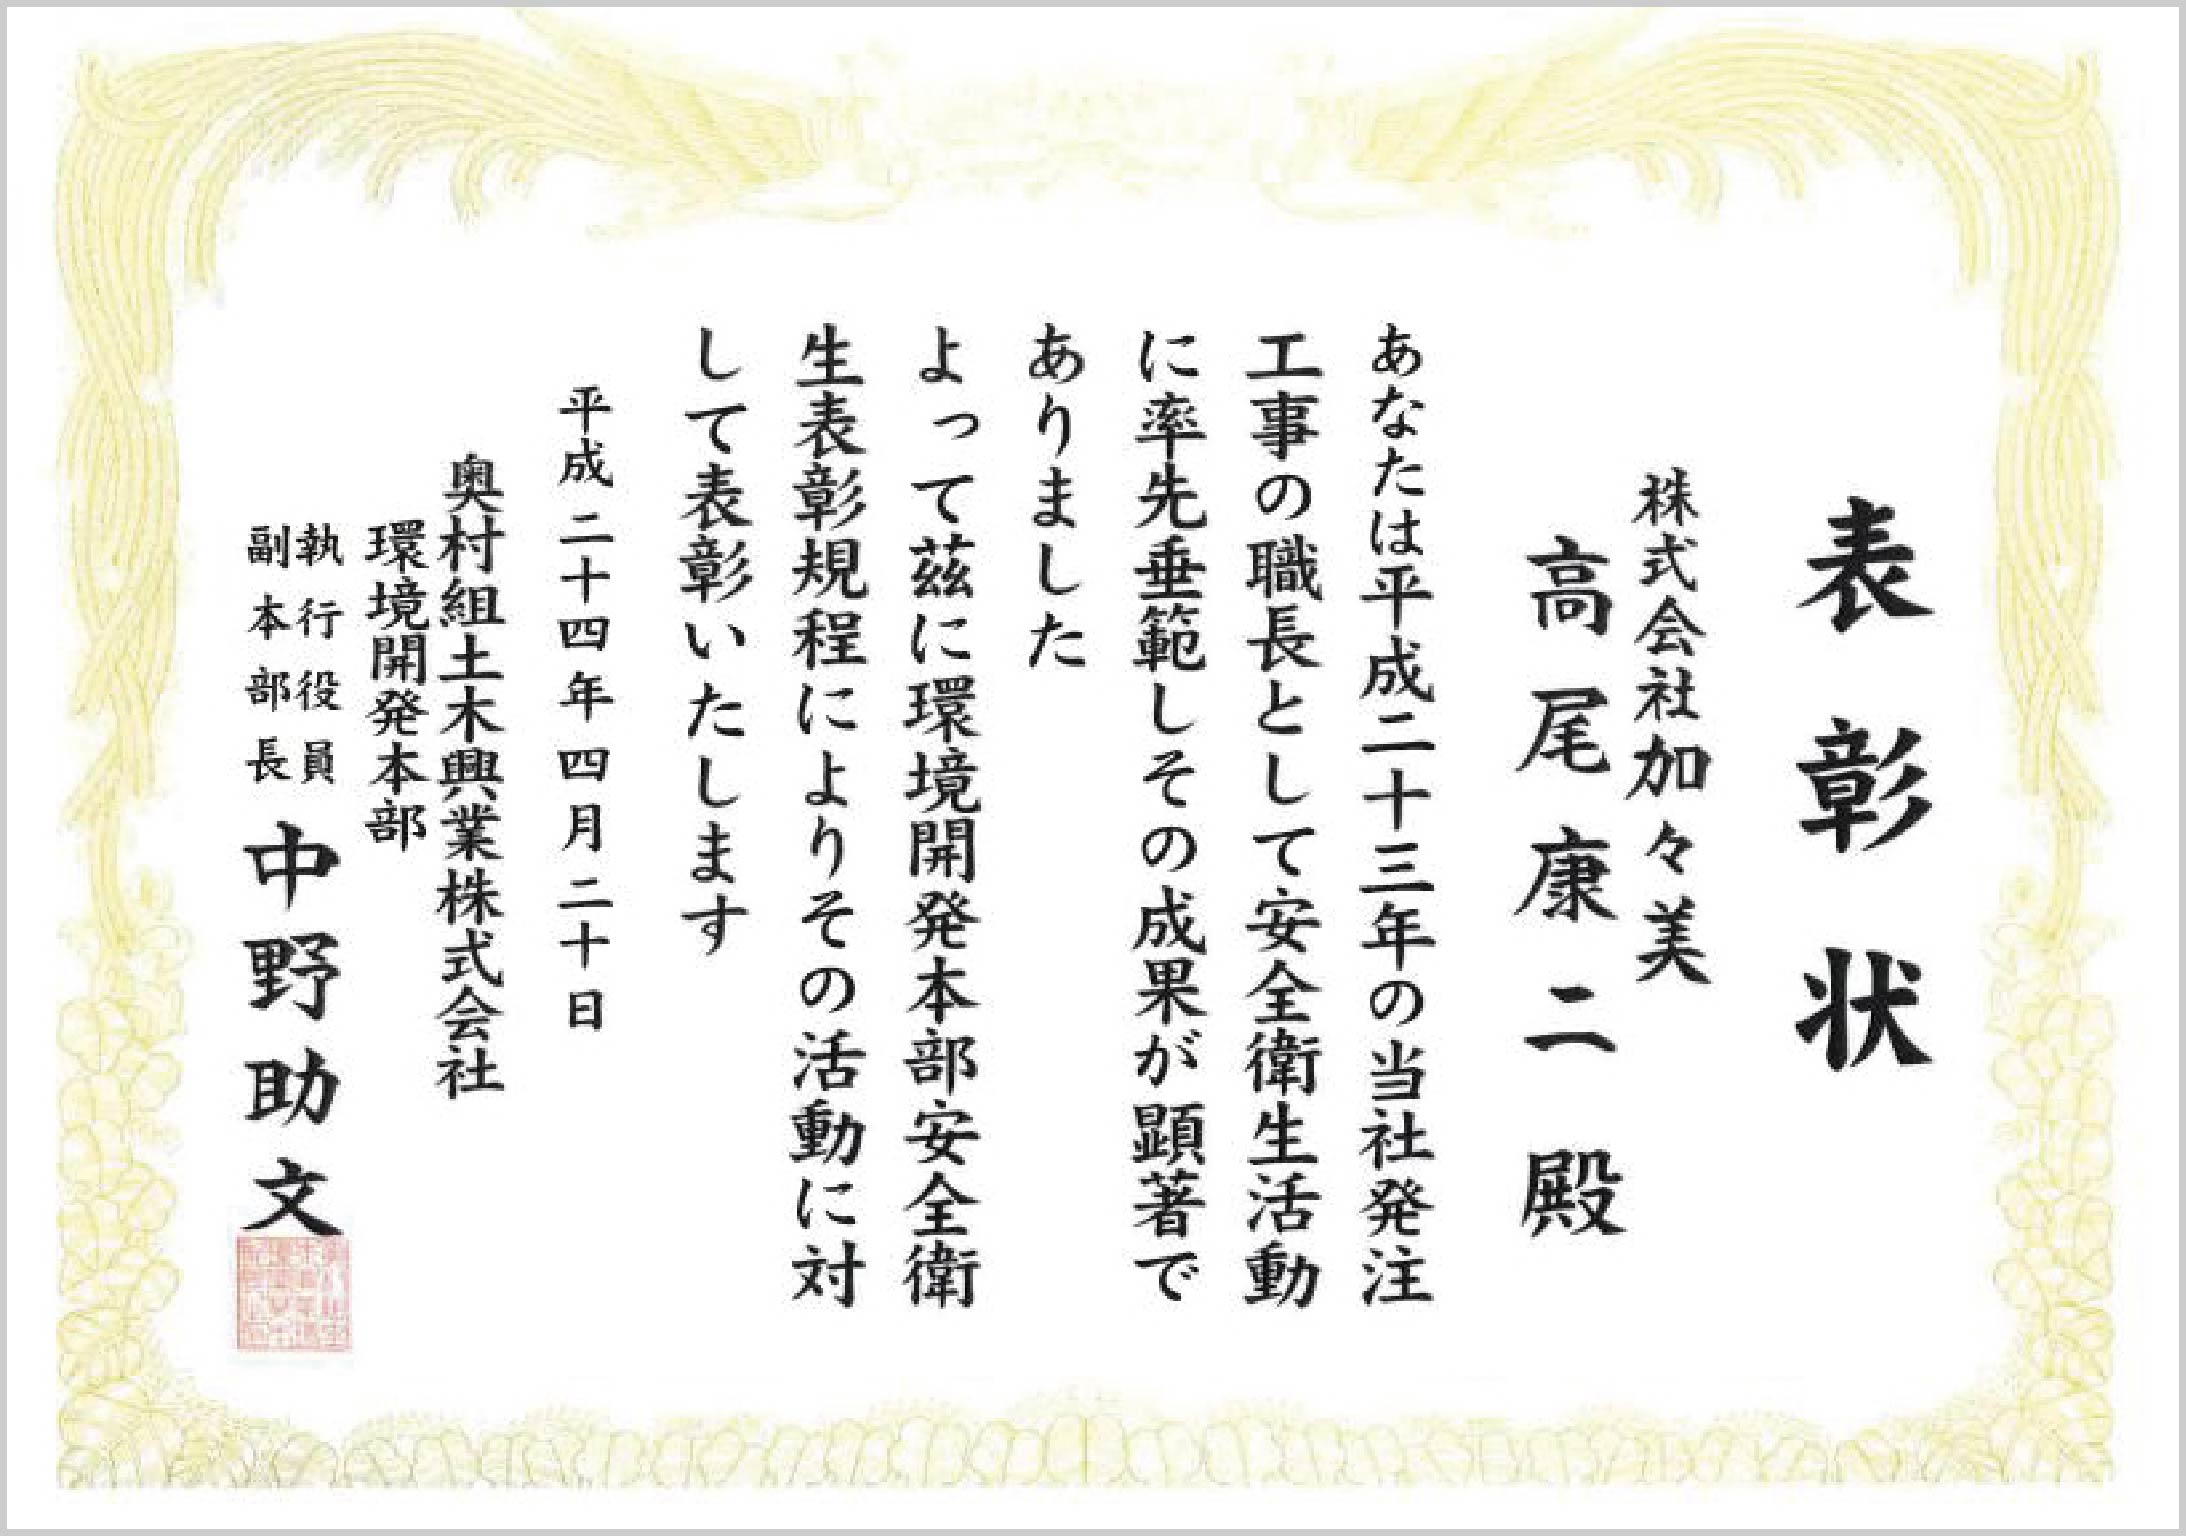 表彰状
株式会社加々美
高尾康二 殿
あなたは平成二十三年の当社発注
工事の職長として安全衛生活動
に率先垂範しその成果が顕著で
ありました
よって茲に環境開発本部安全衛
生表彰規程によりその活動に対
して表彰いたします
平成二十四年四月二十日
奥村組土木興業株式会社
環境開発本部
執行役員
副本部長
中野助文